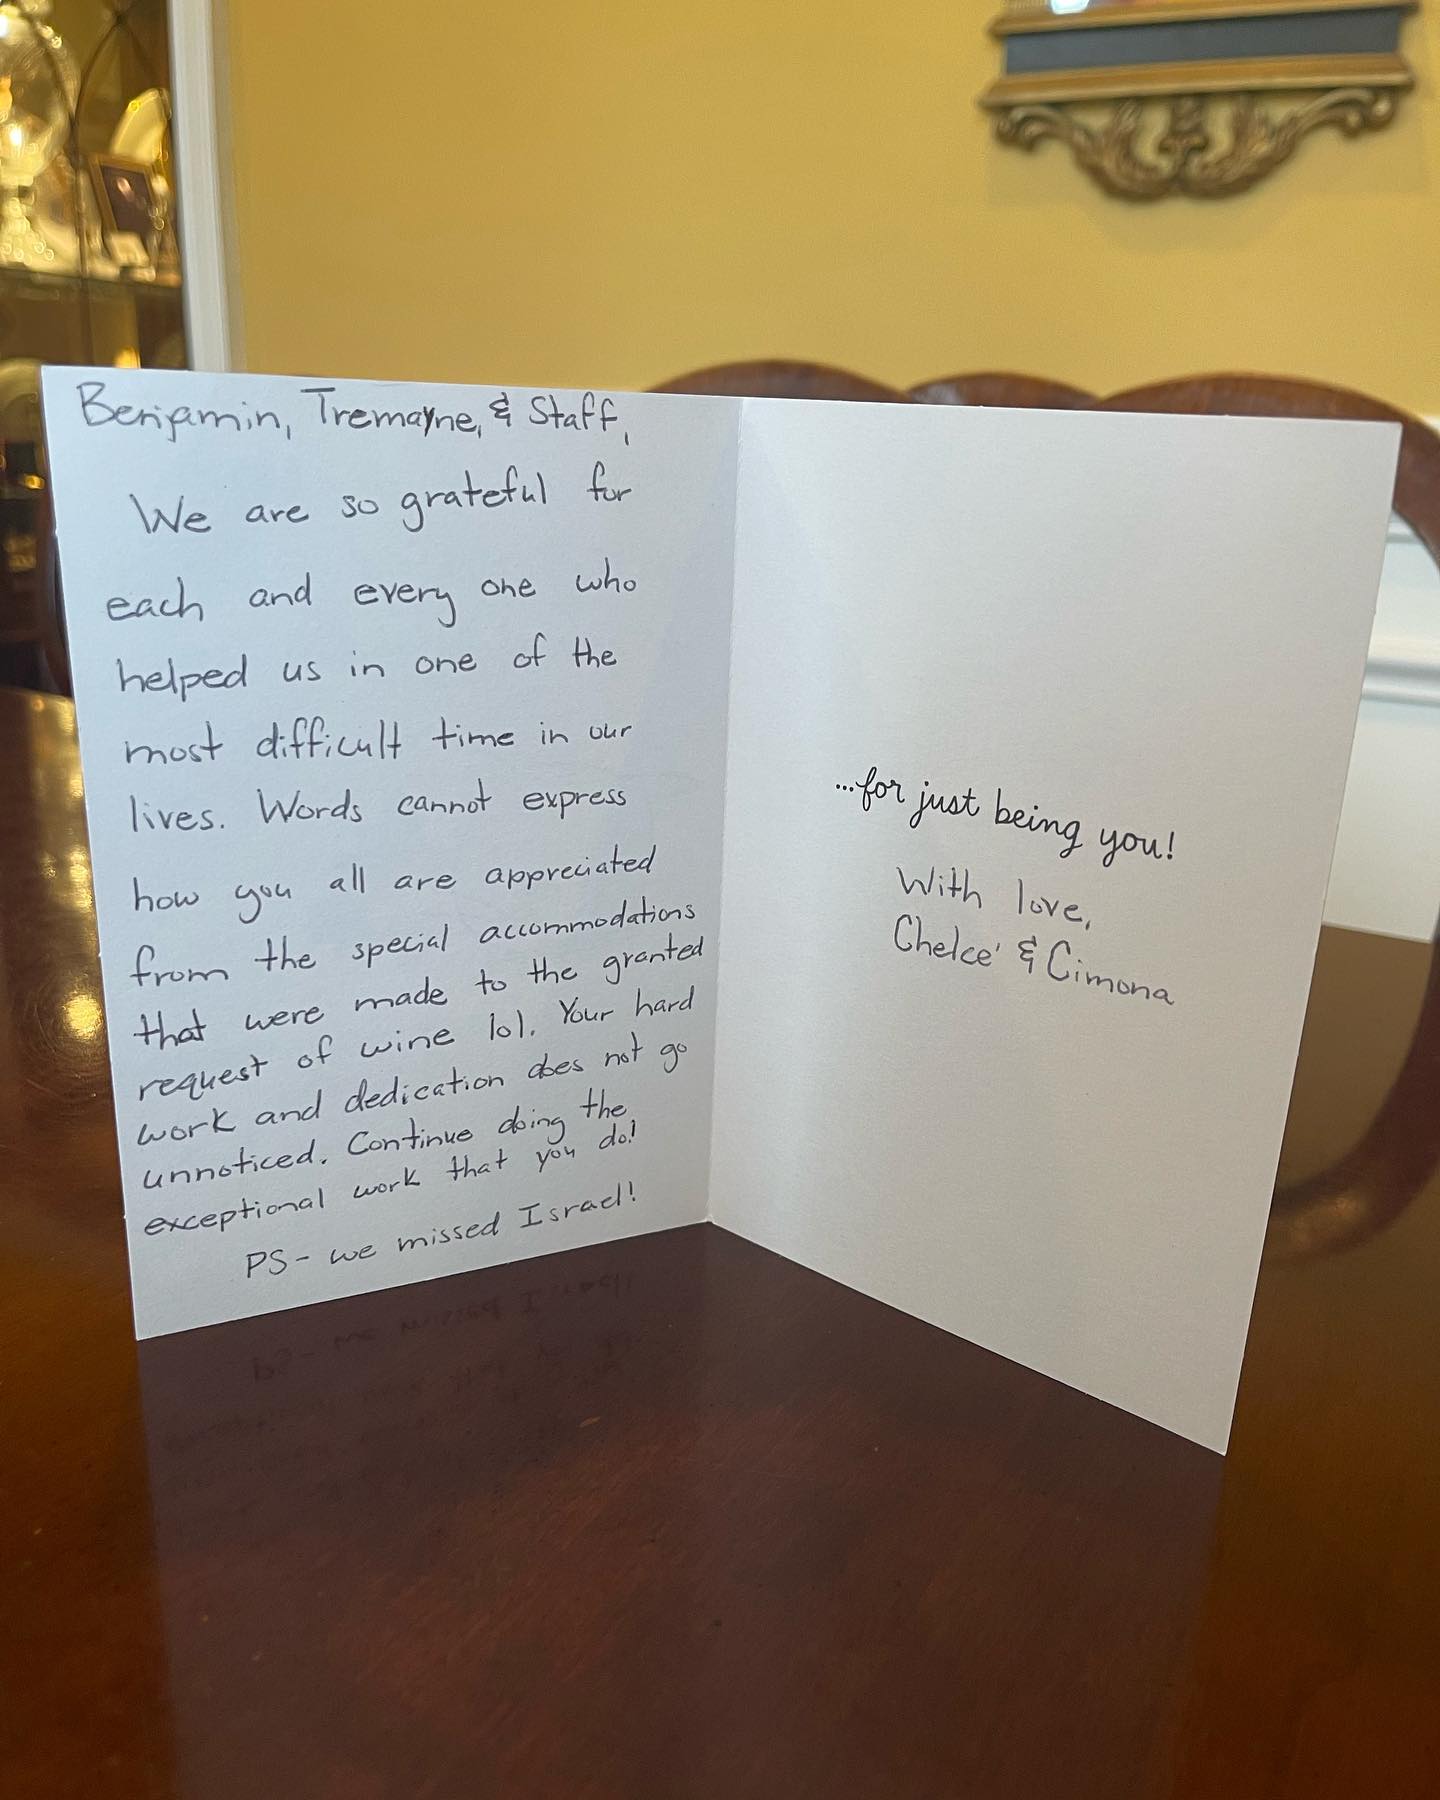 Benjamin, Tremayne, & Staff,
We are so grateful for
each and every one who
helped us in one of the
most difficult time in our
lives. Words cannot express
how you all are appreciated
from the special accommodations
that were made to the granted
request of wine lol. Your hard
work and dedication does not go
unnoticed. Continue doing the
exceptional work that you do!
PS- we missed Israel!
...for just being you!
With love,
Chelce' & Cimona